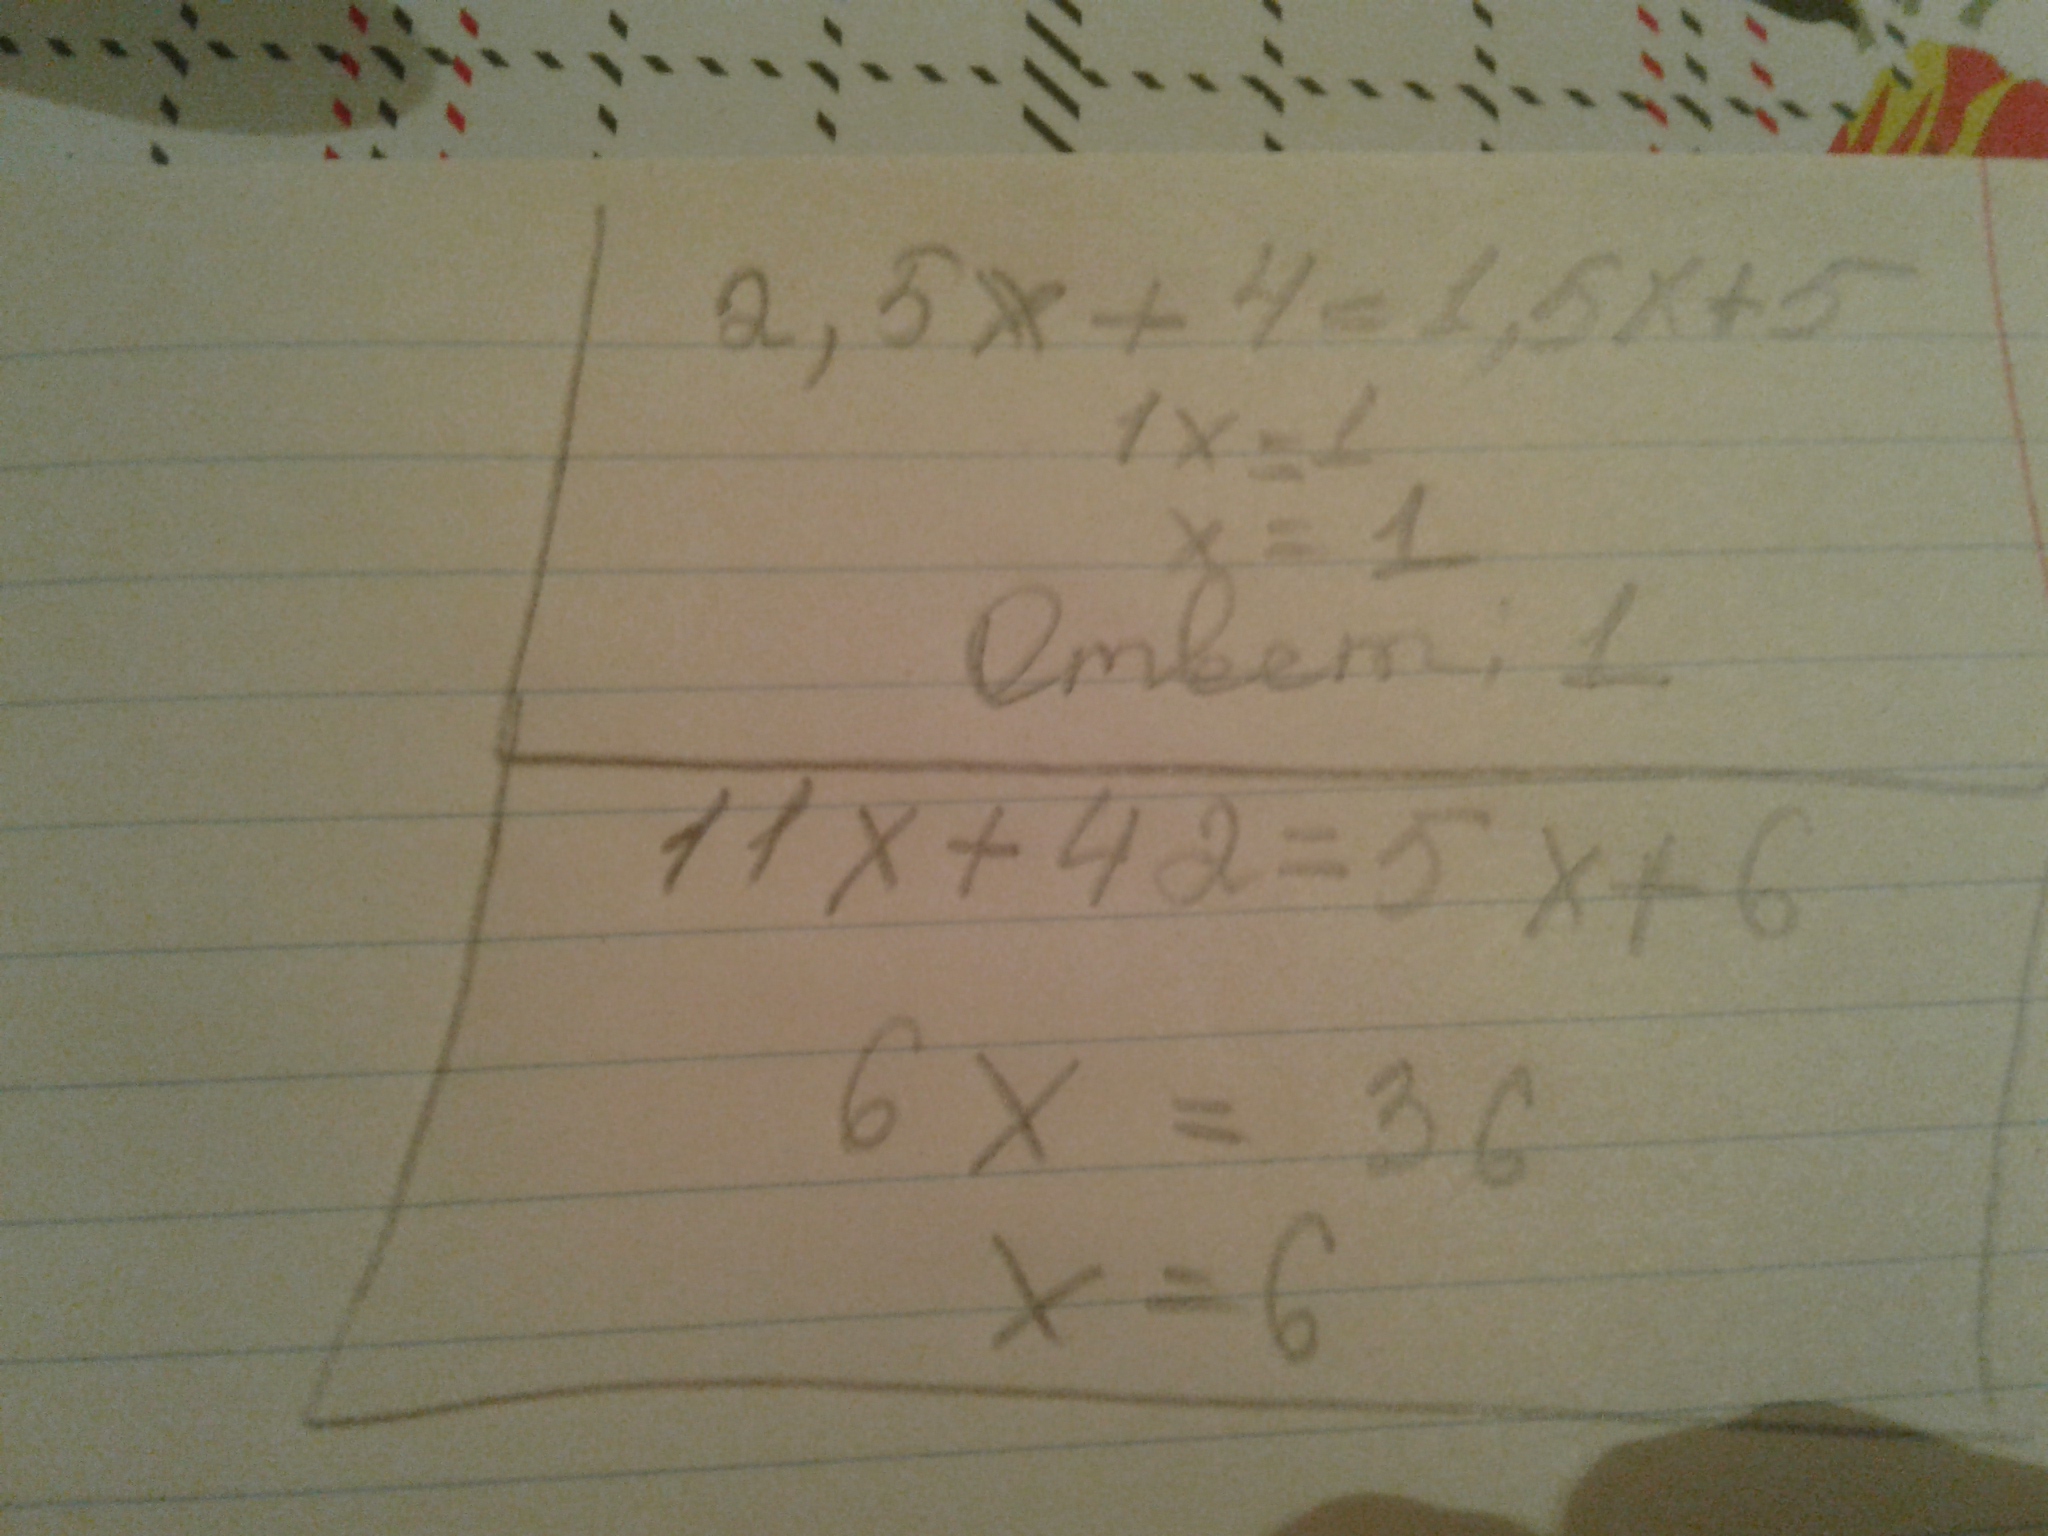 2,5x+4=1,5x+5
1x=1
x=1
Ответ: 1
11x+42=5x+6
6x=36
x=6